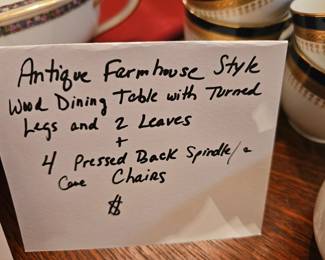 Antique Farmhouse Style
Wood Dining Table with Turned
Legs and 2 Leaves
+
4 Pressed Back Spindle/
Cane Chairs
$